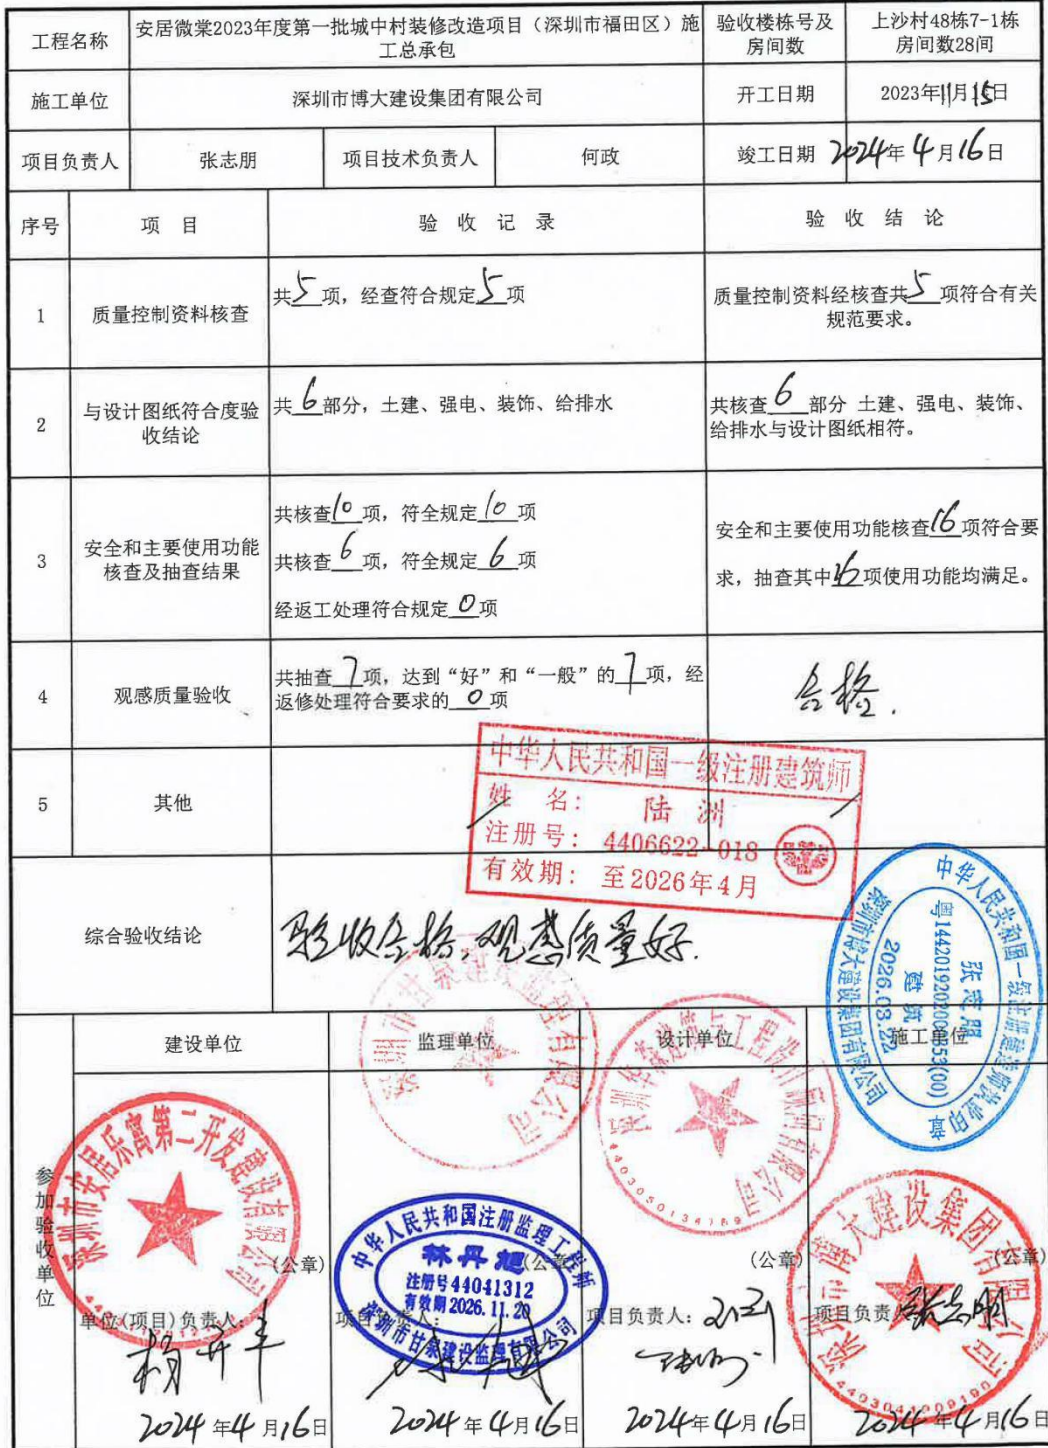 工程名称
安居微棠2023年度第一批城中村装修改造项目（深圳市福田区）施
工总承包
验收楼栋号及
房间数
上沙村48栋7-1栋
房间数28间
施工单位
深圳市博大建设集团有限公司
开工日期
2023年11月15日
项目负责人
张志朋
项目技术负责人
何政
竣工日期
2024年4月16日
序号
项 目
验 收 记 录
验 收 结 论
1
质量控制资料核查
共5项，经查符合规定5项
质量控制资料经核查共5项符合有关
规范要求。
2
与设计图纸符合度验
收结论
共6部分，土建、强电、装饰、给排水
共核查6部分 土建、强电、装饰、
给排水与设计图纸相符。
3
安全和主要使用功能
核查及抽查结果
共核查10项，符全规定10项
共核查6项，符全规定6项
经返工处理符合规定0项
安全和主要使用功能核查16项符合要
求，抽查其中16项使用功能均满足。
4
观感质量验收
共抽查7项，达到“好”和“一般”的7项，经
返修处理符合要求的0项
合格.
5
其他
中华人民共和国一级注册建筑师
姓 名： 陆 洲
注册号： 4406622-018
有效期： 至2026年4月
综合验收结论
验收合格，观感质量好.
中华人民共和国一级注册建造师执业印章
张志朋
建筑
2026.03.22
深圳市博大建设集团有限公司
参加验收单位
建设单位
监理单位
设计单位
施工单位
深圳市安居乐寓第二开发建设有限公司
深圳市甘泉建设监理有限公司
4403050134789
深圳市博大建设集团有限公司
中华人民共和国注册监理工程师
林丹旭
注册号44041312
有效期2026.11.20
深圳市甘泉建设监理有限公司
(公章)
(公章)
(公章)
(公章)
单位(项目)负责人：
项目负责人：
项目负责人：
项目负责人
张志朋
2024年4月16日
2024年4月16日
2024年4月16日
2024年4月16日